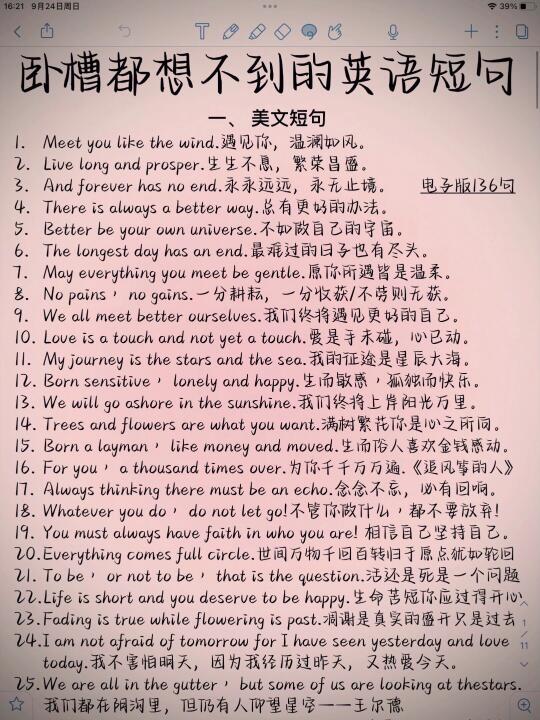 16:21 9月24日周日 39%
卧槽都想不到的英语短句
一、美文短句
1. Meet you like the wind.遇见你，温澜如风。
2. Live long and prosper.生生不息，繁荣昌盛。
3. And forever has no end.永永远远，永无止境。 电子版136句
4. There is always a better way.总有更好的办法。
5. Better be your own universe.不如做自己的宇宙。
6. The longest day has an end.最难过的日子也有尽头。
7. May everything you meet be gentle.愿你所遇皆是温柔。
8. No pains，no gains.一分耕耘，一分收获/不劳则无获。
9. We all meet better ourselves.我们终将遇见更好的自己。
10. Love is a touch and not yet a touch.爱是手未碰，心已动。
11. My journey is the stars and the sea.我的征途是星辰大海。
12. Born sensitive，lonely and happy.生而敏感，孤独而快乐。
13. We will go ashore in the sunshine.我们终将上岸阳光万里。
14. Trees and flowers are what you want.满树繁花你是心之所向。
15. Born a layman，like money and moved.生而俗人喜欢金钱感动。
16. For you，a thousand times over.为你千千万万遍.《追风筝的人》
17. Always thinking there must be an echo.念念不忘，必有回响。
18. Whatever you do，do not let go!不管你做什么，都不要放弃!
19. You must always have faith in who you are! 相信自己坚持自己。
20.Everything comes full circle.世间万物千回百转归于原点犹如轮回
21. To be，or not to be，that is the question.活还是死是一个问题
22.Life is short and you deserve to be happy.生命苦短你应过得开心
23.Fading is true while flowering is past.凋谢是真实的盛开只是过去
24.I am not afraid of tomorrow for I have seen yesterday and love
today.我不害怕明天，因为我经历过昨天，又热爱今天。
25.We are all in the gutter，but some of us are looking at thestars.
我们都在阴沟里，但仍有人仰望星空——王尔德
1
11